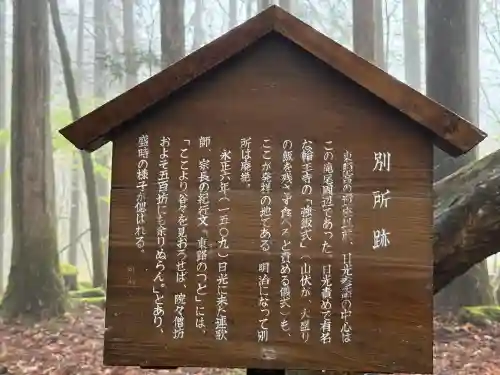 別所跡
東照宮の鎮座以前、日光参詣の中心は
この滝尾周辺であった。日光責めで有名
な輪王寺の「強飯式」(山伏が、大盛り
の飯を残さず食べろと責める儀式)も、
ここが発祥の地である。明治になって別
所は廃絶。
永正六年(一五〇九)日光に来た連歌
師、宗長の紀行文「東路のつと」には、
「ここより谷々を見おろせば、院々僧坊
およそ五百坊にも余りぬらん。」とあり、
盛時の様子が偲ばれる。